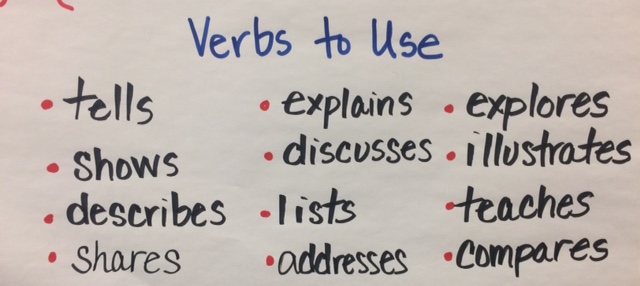 Verbs to Use
• tells
• shows
• describes
• shares
• explains
• discusses
• lists
• addresses
• explores
• illustrates
• teaches
• compares